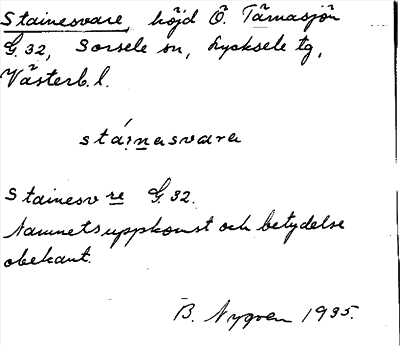 Stainesvare, höjd Ö. Tärnasjön
G. 32, Sorsele sn, Lycksele tg,
Västerb. l.
stái̯nasvara
Stainesvare G. 32.
Namnets uppkomst och betydelse
obekant.
B. Nygren 1935.